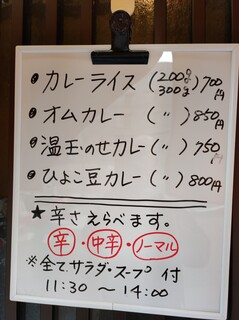 ・カレーライス(200g 300g)700円
・オムカレー(〃)850円
・温玉のせカレー(〃)750円
・ひよこ豆カレー(〃)800円
★辛さえらべます。
辛・中辛・ノーマル
※全てサラダ・スープ付
11:30 〜 14:00